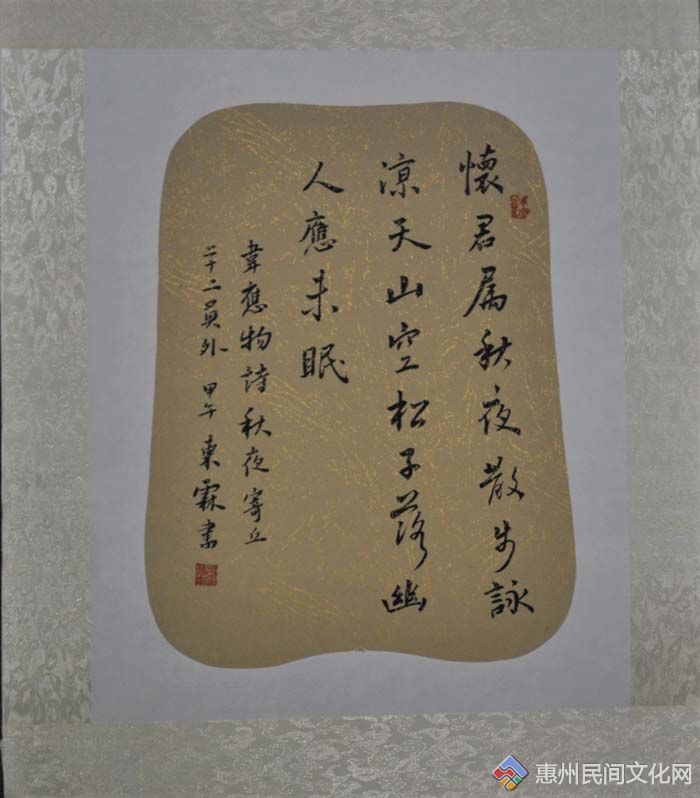 懷君属秋夜散步詠
凉天山空松子落幽
人應未眠
韋應物詩秋夜寄丘
二十二員外 甲午東霖書
惠州民间文化网